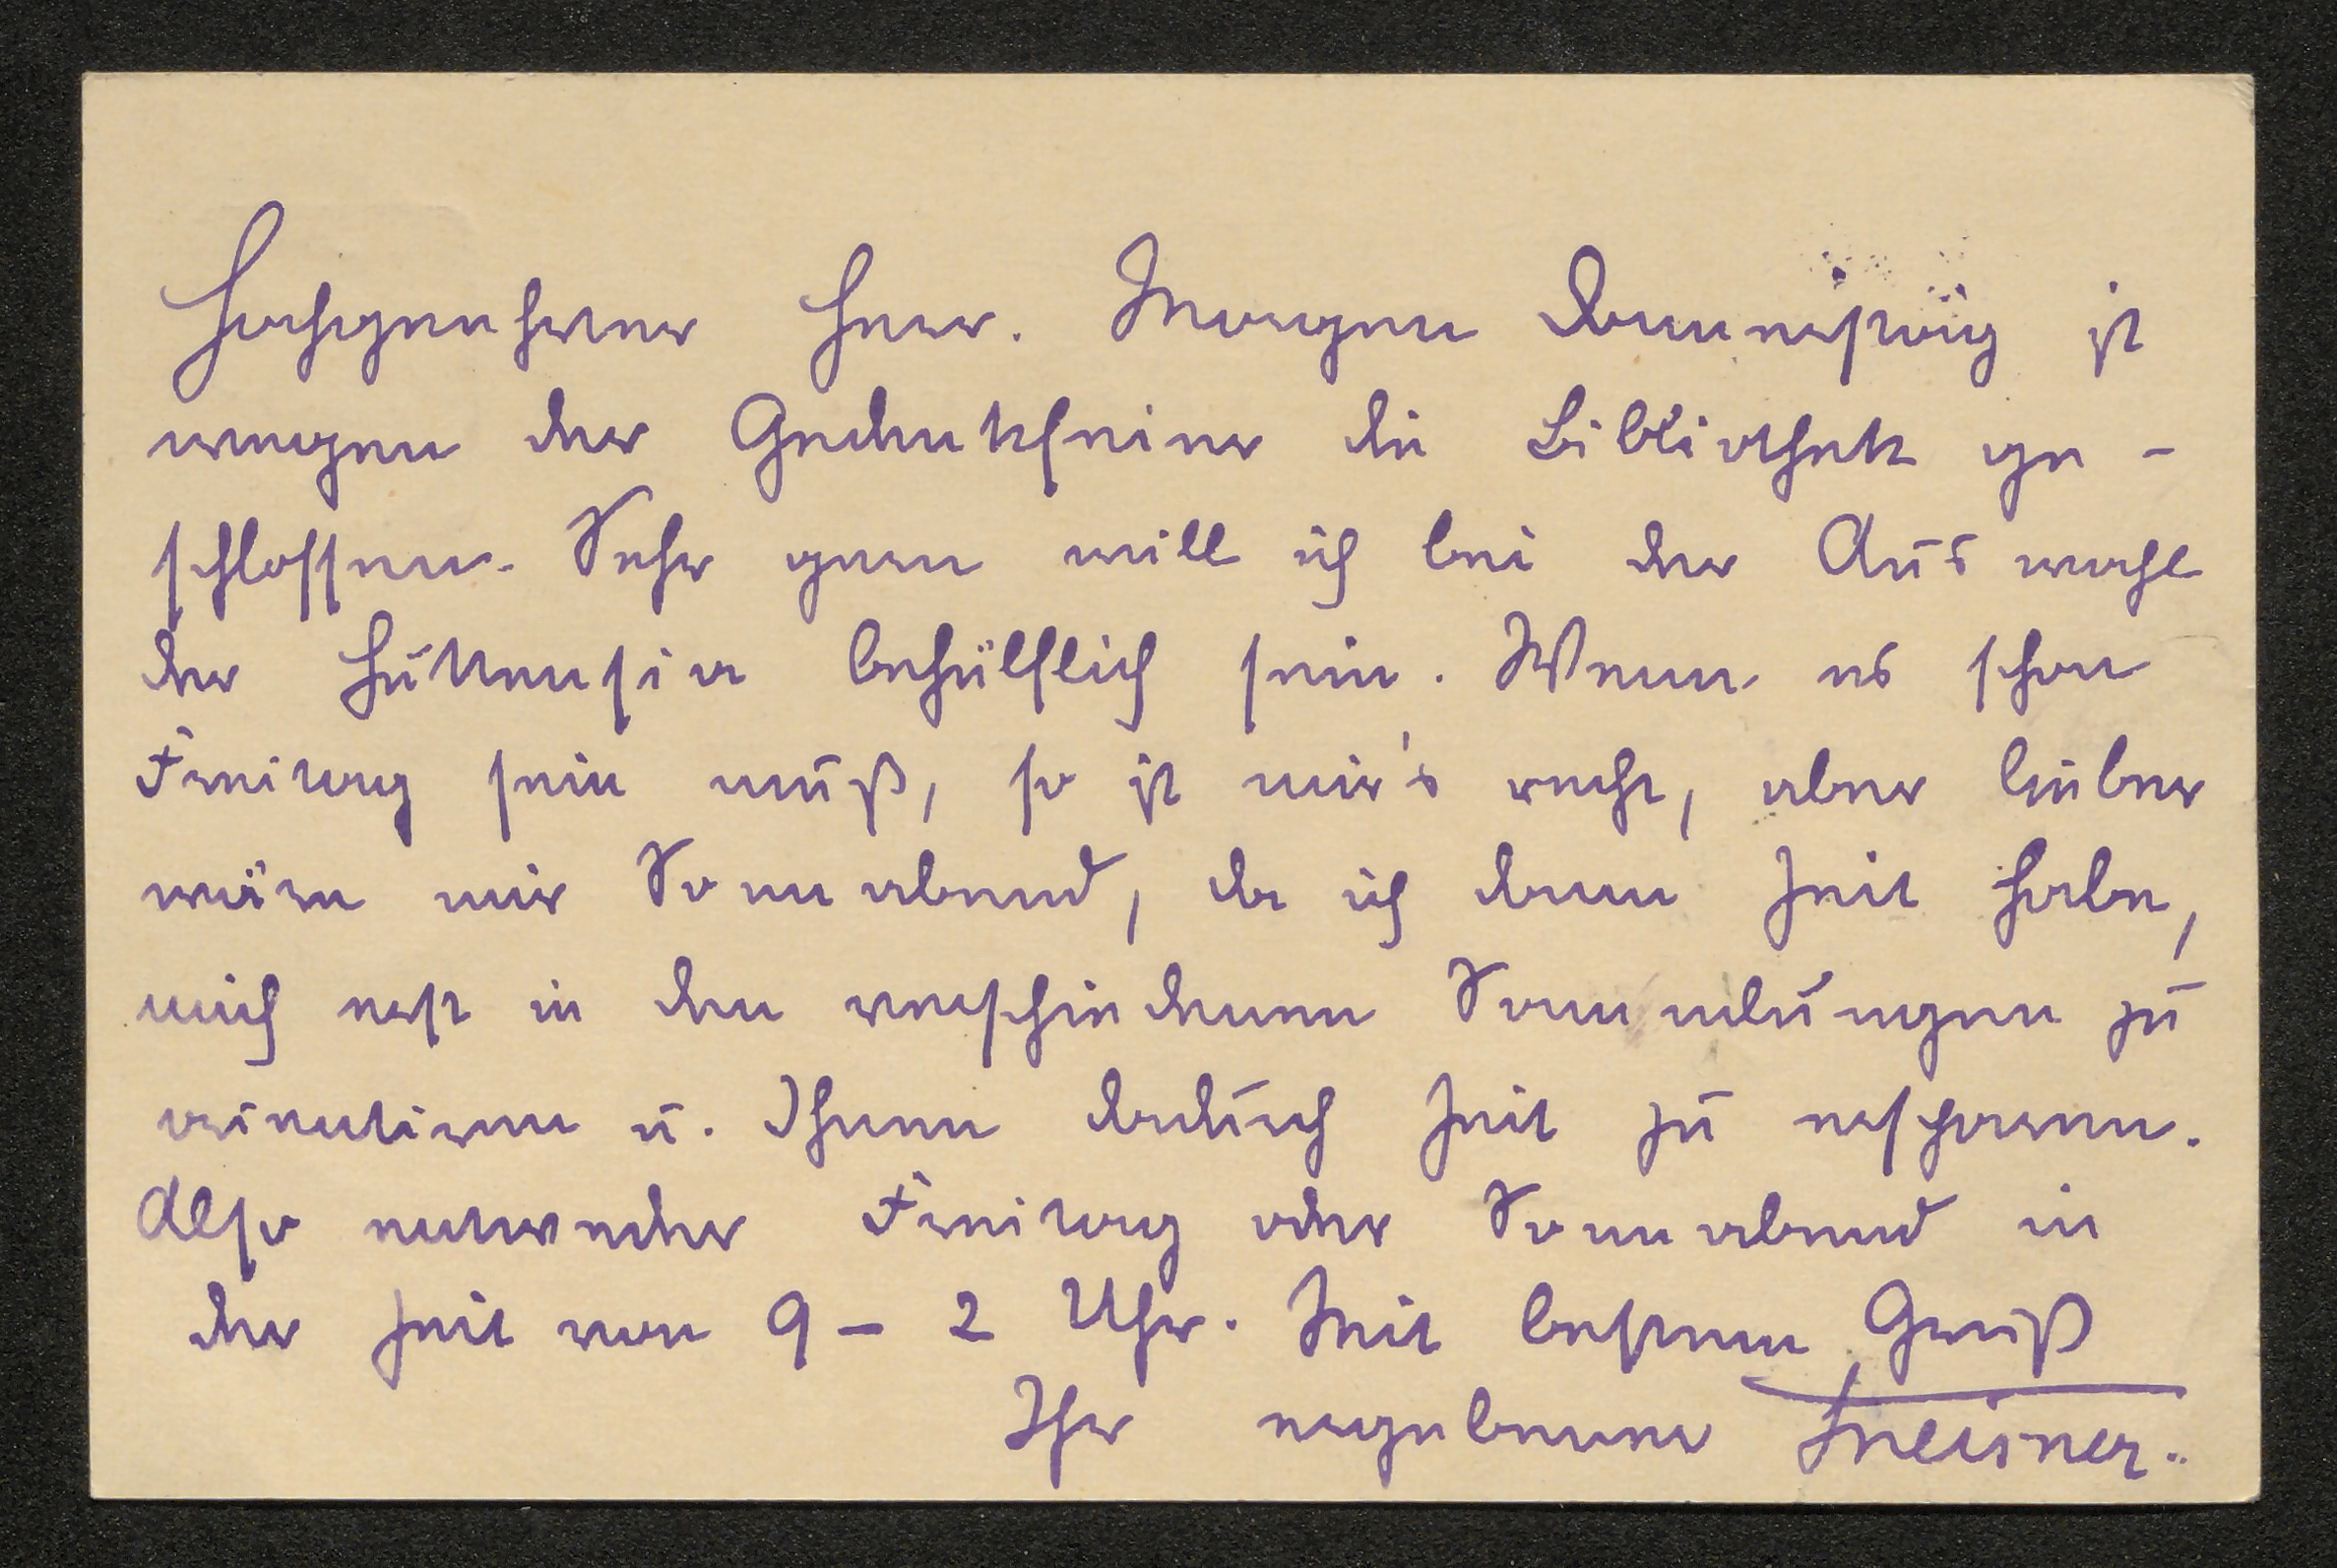 Hochgeehrter Herr. Morgen Donnerstag ist
wegen der Gedenkfeier die Bibliothek ge-
schlossen. Sehr gern will ich bei der Auswahl
der Huttensia behülflich sein. Wenn es schon
Freitag sein muß, so ist mir's recht, aber lieber
wäre mir Sonnabend, da ich dann Zeit habe,
mich erst in den verschiedenen Sammlungen zu
orientiren u. Ihnen dadurch Zeit zu ersparen.
Also entweder Freitag oder Sonnabend in
der Zeit von 9 – 2 Uhr. Mit bestem Gruß
Ihr ergebener